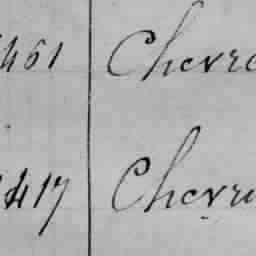 461 Chevr
417 Chevr